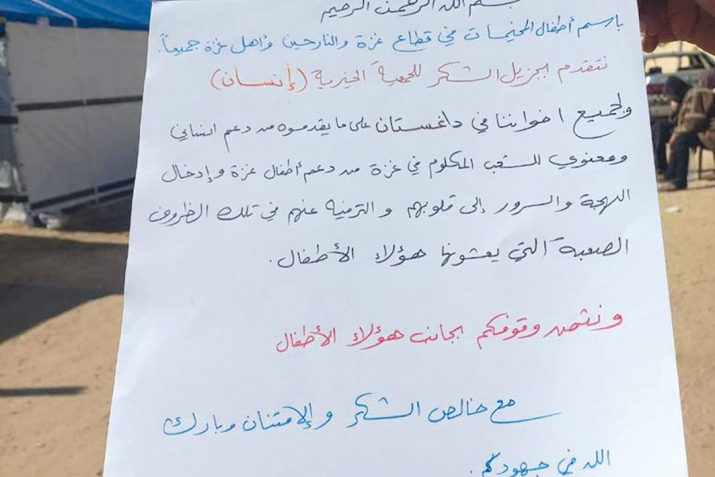 بسم الله الرحمن الرحيم
باسم أطفال المخيمات في قطاع غزة والنازحين وأهل غزة جميعاً.
نتقدم بجزيل الشكر للجمعية الخيرية (إنسان)
ولجميع اخواننا في داغستان على ما يقدموه من دعم انساني
ومعنوي للشعب المكلوم في غزة من دعم أطفال غزة وإدخال
البهجة والسرور إلى قلوبهم والترفيه عنهم في تلك الظروف
الصعبة التي يعيشونها هؤلاء الأطفال.
ونثمن وقوفكم بجانب هؤلاء الأطفال
مع خالص الشكر والإمتنان وبارك
الله في جهودكم.